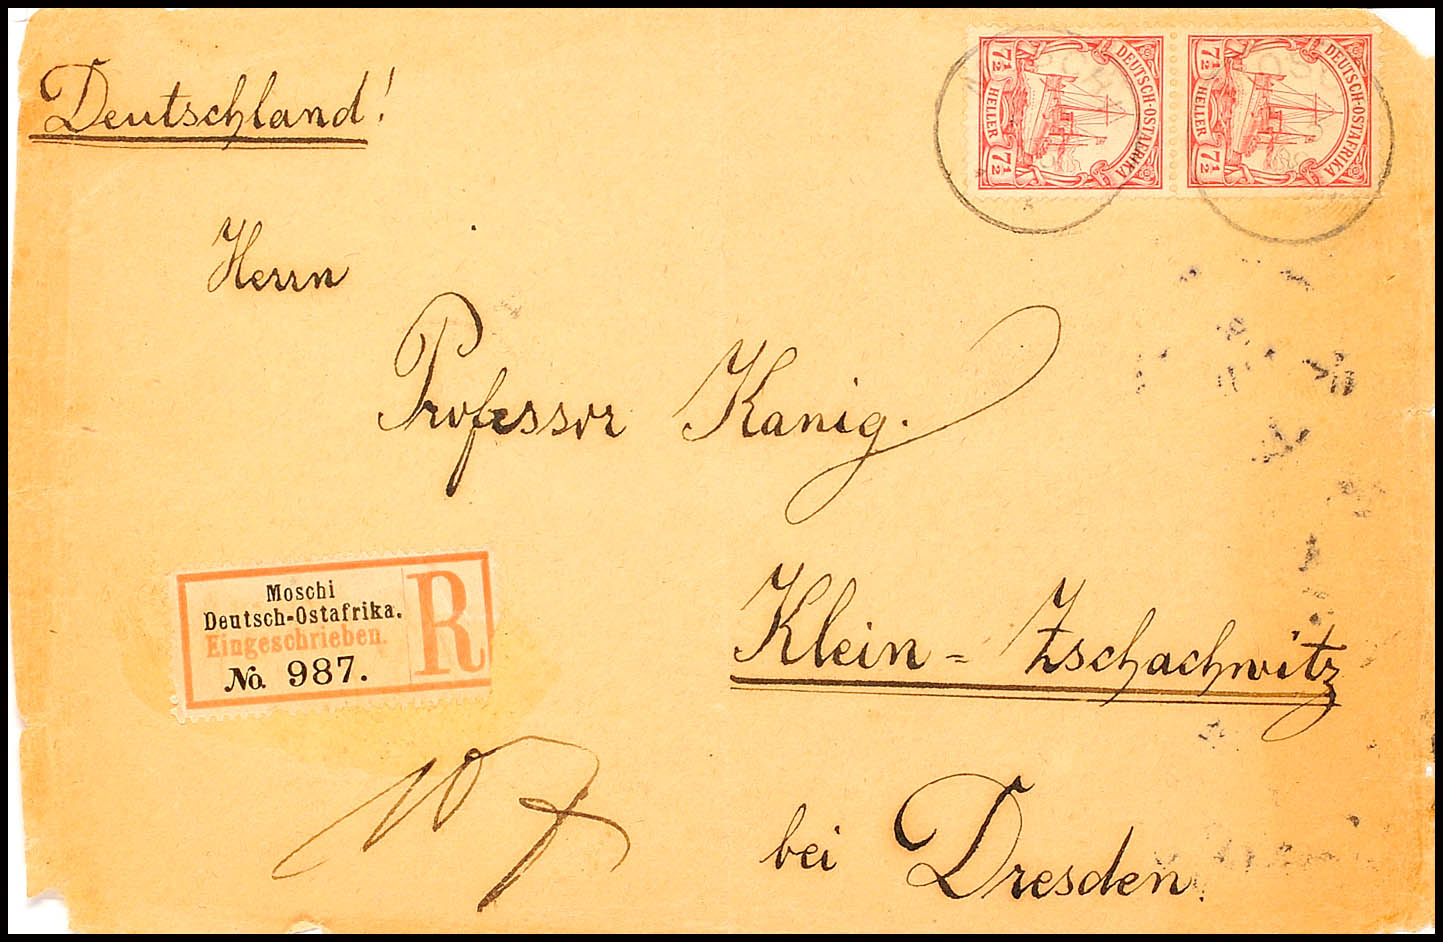 Deutschland!
DEUTSCH-OSTAFRIKA
7½ HELLER 7½
DEUTSCH-OSTAFRIKA
7½ HELLER 7½
Herrn
Professor Kanig.
Moschi
Deutsch-Ostafrika.
Eingeschrieben.
No. 987.
R
Klein=Zschachwitz
bei Dresden.